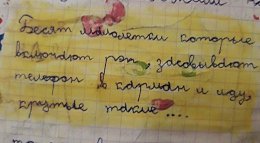 Бесят малолетки которые
включают рэп, засовывают
телефон в карман и идут
крутые такие ....